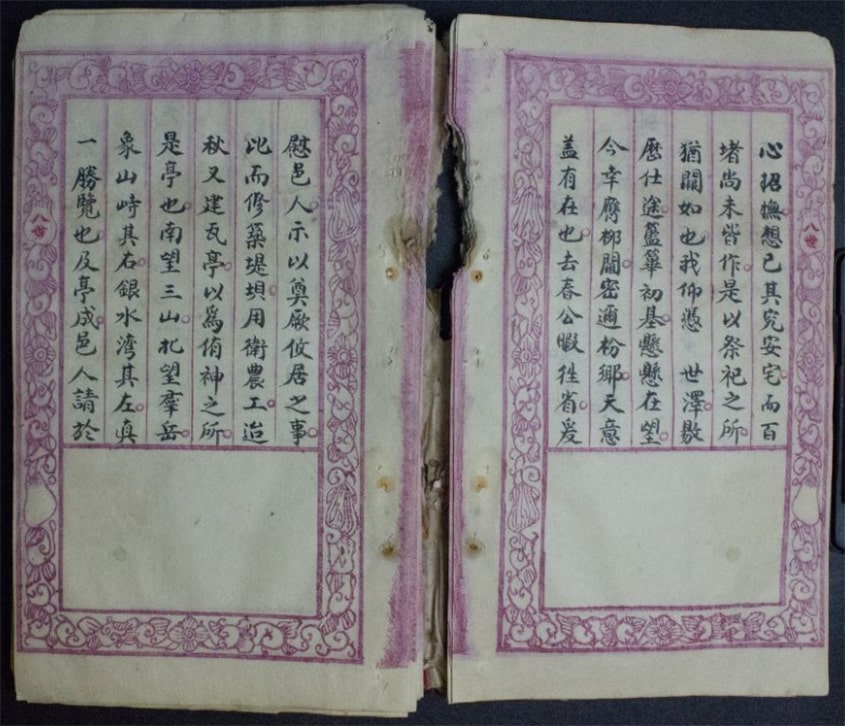 心招撫想已其究安宅而百
堵尚未皆作是以祭祀之所
猶闕如也我仰憑 世澤敭
歷仕途簠簋初基懸懸在望
今幸膺 閫密邇枌鄉天意
盖有在也去春公暇徃省爰
慰邑人示以奠厥攸居之事
比而修築堤垻用衛農工迨
秋又建瓦亭以爲侑神之所
是亭也南望三山北望羣岳
象山峙其右銀水湾其左真
一勝覽也及亭成邑人請於
八世
八世